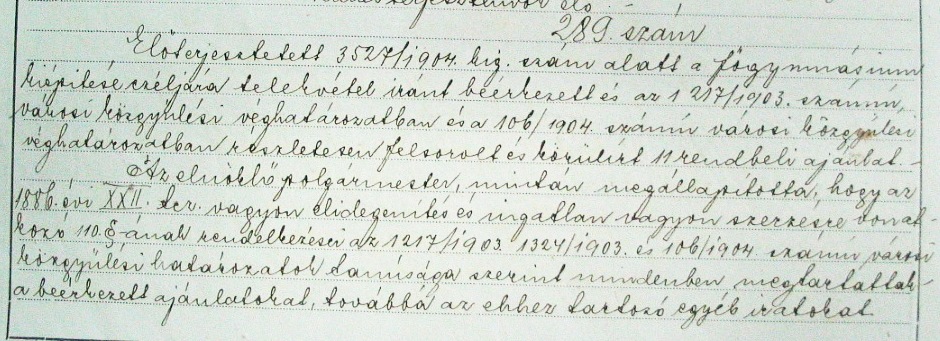 289. szám
Előterjesztetett 3527/1904. kig. szám alatt a főgymnásium
kiépitése czéljára telekvétel iránt beérkezett és az 1217/1903. számú,
városi közgyülési véghatározatban és a 106/1904. számú városi közgyülési
véghatározatban részletesen felsorolt és körülirt 11 rendbeli ajánlat. -
Az elnöklő polgármester, miután megállapitotta, hogy az
1886. évi XXII. tcz. vagyon elidegenités és ingatlan vagyon szerzésre vonat-
kozó 110. §-ának rendelkezései az 1217/1903. 1324/1903. és 106/1904. számú városi
közgyülési határozatok tanúsága szerint mindenben megtartattak -
a beérkezett ajánlatokat, továbbá az ehhez tartozó egyéb iratokat